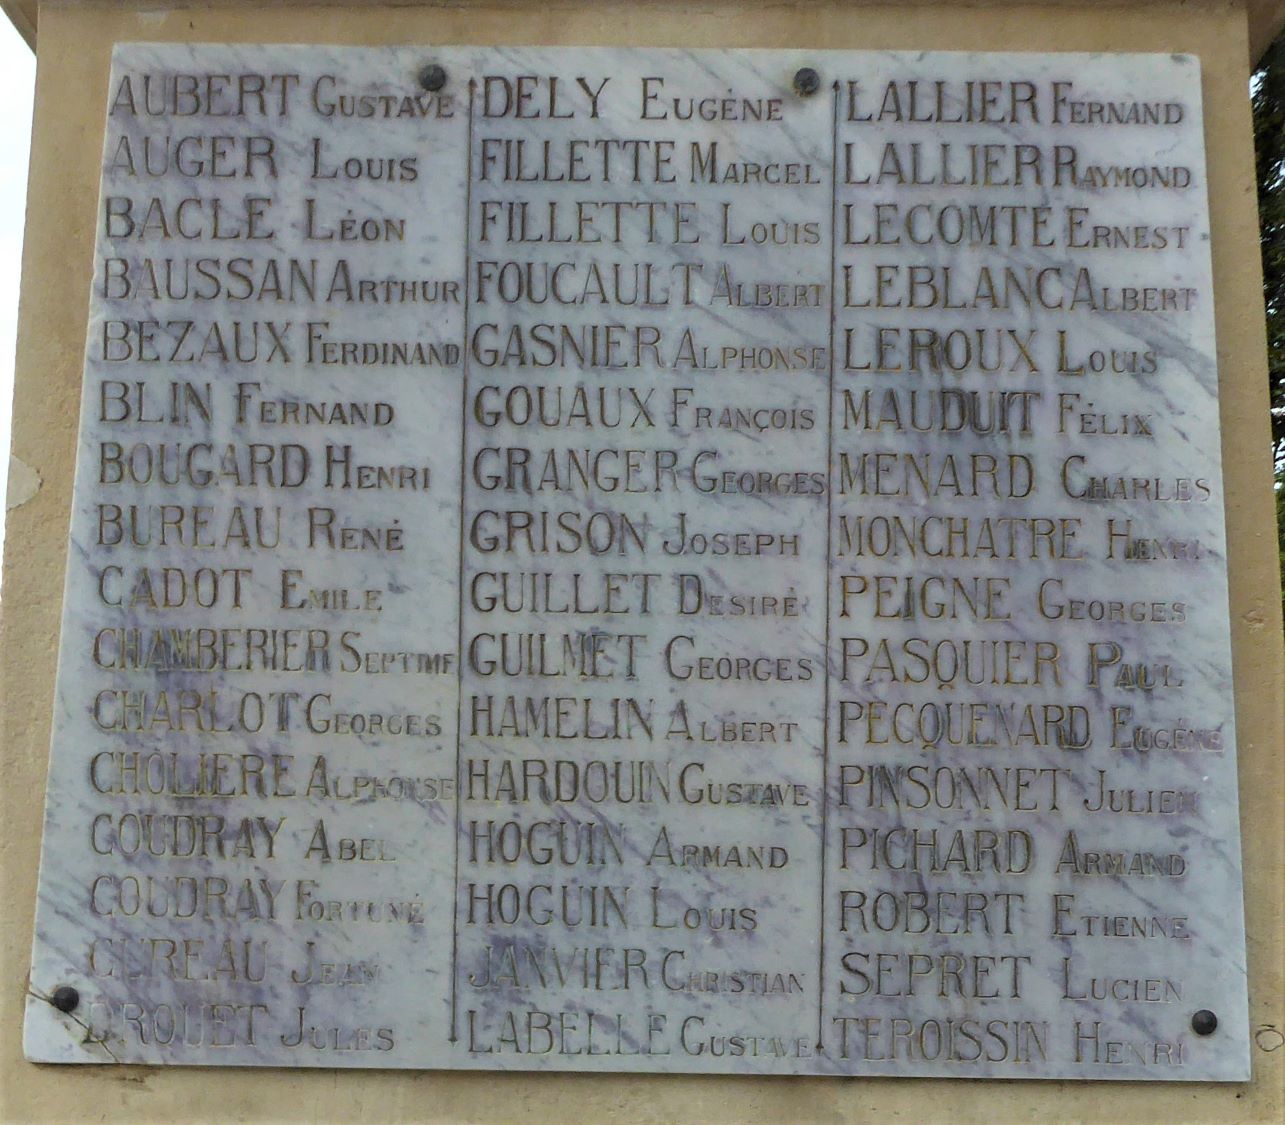 AUBERT GUSTAVE
AUGER LOUIS
BACLE LÉON
BAUSSAN ARTHUR
BEZAUX FERDINAND
BLIN FERNAND
BOUGARD HENRI
BUREAU RENÉ
CADOT EMILE
CHAMBERIER SEPTIME
CHARLOT GEORGES
CHOLIER ALPHONSE
COUDRAY ABEL
COUDRAY FORTUNÉ
CUREAU JEAN
DROUET JULES
DELY EUGÈNE
FILLETTE MARCEL
FILLETTE LOUIS
FOUCAULT ALBERT
GASNIER ALPHONSE
GOUAUX FRANÇOIS
GRANGER GEORGES
GRISON JOSEPH
GUILLET DESIRÉ
GUILMET GEORGES
HAMELIN ALBERT
HARDOUIN GUSTAVE
HOGUIN ARMAND
HOGUIN LOUIS
JANVIER CHRISTIAN
LABELLE GUSTAVE
LALLIER FERNAND
LALLIER RAYMOND
LECOMTE ERNEST
LEBLANC ALBERT
LEROUX LOUIS
MAUDUIT FÉLIX
MENARD CHARLES
MONCHATRE HENRI
PEIGNE GEORGES
PASQUIER PAUL
PECQUENARD EUGÈNE
PINSONNET JULIEN
PICHARD ARMAND
ROBERT ETIENNE
SEPRET LUCIEN
TEROISSIN HENRI